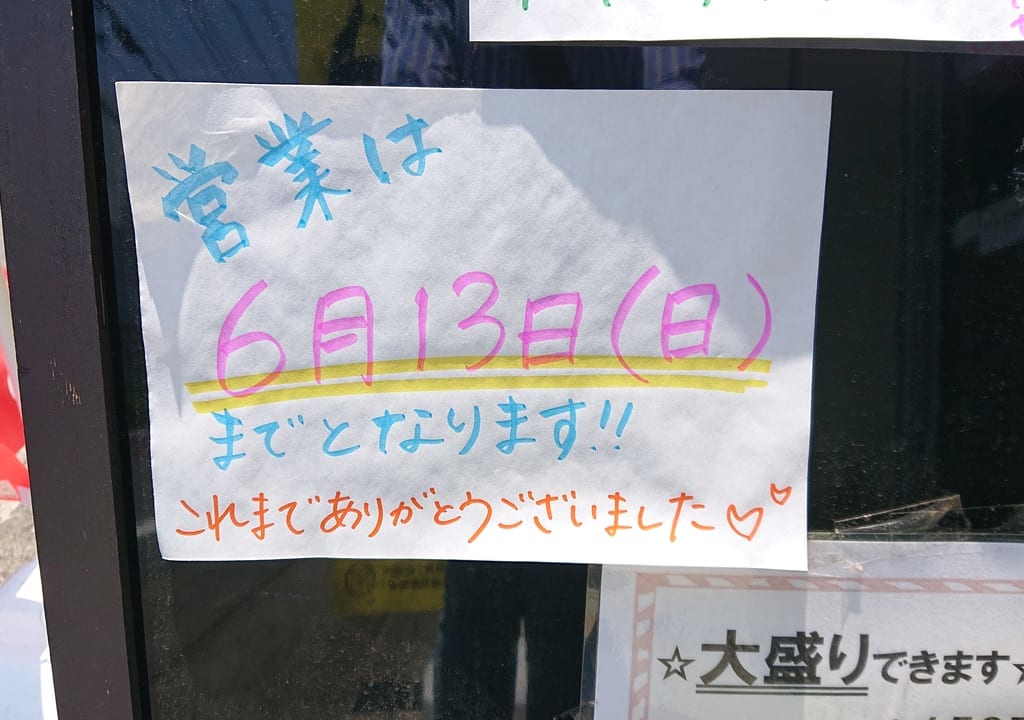 営業は
6月13日(日)
までとなります!!
これまでありがとうございました♡♡
☆大盛りできます☆